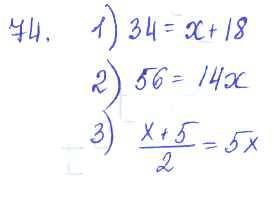 74. 1) 34 = x + 18
2) 56 = 14x
3) (x + 5)/2 = 5x